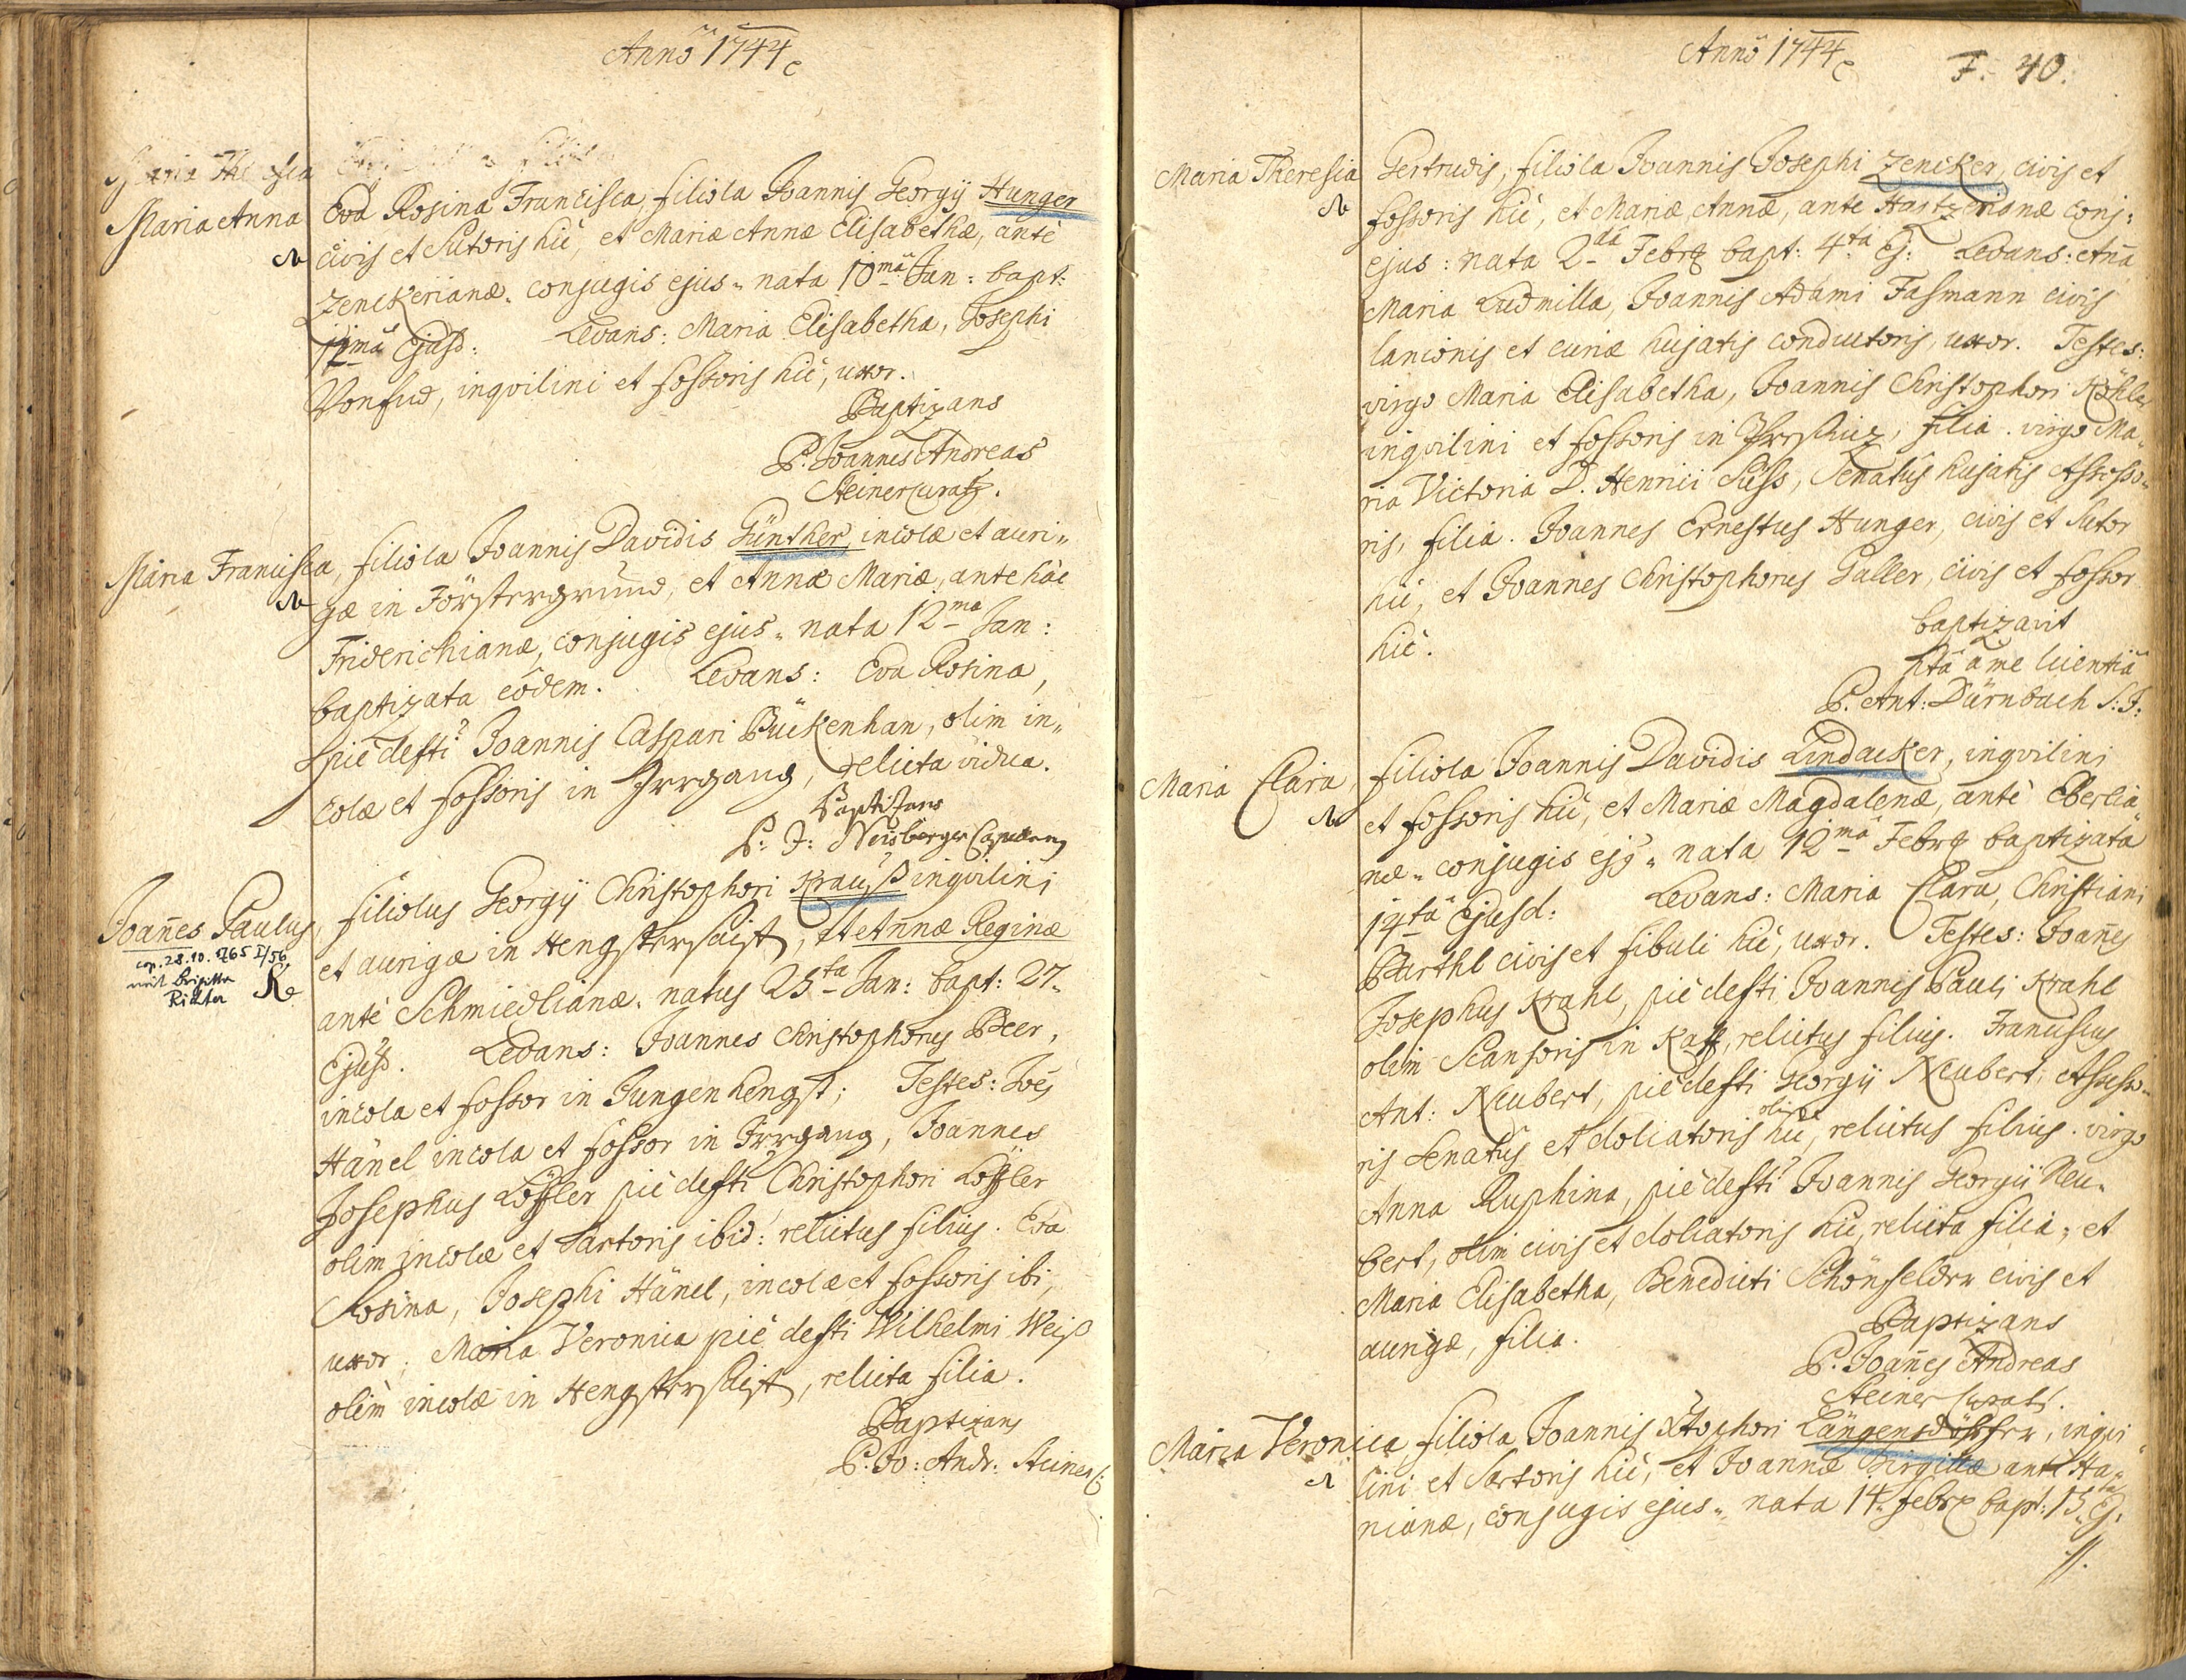 Anno 1744
Maria Theresia
Maria Anna Eva Rosina Francisca, filiola Joannis Georgij Hunger
civis et Sutoris hic, et Mariæ Annæ Elisabethæ, antè
Zenckerianæ. conjugis ejus. nata 10mâ Jan: bapt:
mâ Ejusd: Levans: Maria Elisabetha, Josephi
inqvilini et fossoris hic, uxor.
Baptizans
P. Joannes Andreas
Steiner
Maria Francisca, filiola Joannis Davidis Günther, incolæ et auri„
gæ in Förstergrund, et Annæ Mariæ, ante hàc
Friderichianæ, conjugis ejus. nata 12ma Jan:
baptizata eôdem. Levans: Eva Rosina,
piè defti Joannis Caspari Bückenhan, olim in„
colæ et fossoris in Irrgang, relicta vidua.
Baptizans
P: J: Neisberger
Joañes Paulus, filiolus Georgij Christophori Krauß inqvilini
et aurigæ in Hengstererbist, et Añnæ Reginæ
antè Schmiedlianæ. natus 25ta Jan: bapt: 27.
Ejusd. Levans: Joannes Christophorus Beer,
incola et fossor in Jungenhengst; Testes: Joes
Hänel incola et fossor in Irrgang, Joannes
Josephus Löffler piè defti Christophori Löffler
olim incolæ et Sartoris ibid: relictus filius. Eva
Rosina, Josephi Hänel, incolæ et fossoris ibi,
uxor; Maria Veronica piè defti Wilhelmi Weiß
olim incolæ in Hengstererbist, relicta filia.
Baptizans
P. Jo: Andr: Steiner C:
cop. 28.10.1765 I/56
mit Brigitta
Richter
Anno 1744
F. 40.
Maria Theresia Gertrudis, filiola Joannis Josephi Zencker, civis et
fossoris hic, et Mariæ Annæ, ante Hartzerianæ conj:
ejus: nata 2dâ Febr bapt: 4tâ Ej: Levans: Aña
Maria Ludmilla, Joannis Adami Fasmann civis
lanionis et curiæ hujatis conductoris, uxor. Testes:
virgo Maria Elisabetha, Joannis Christophori Köhler
inqvilini et fossoris in filia. virgo Ma„
ria Victoria D. Henrici Süss, Senatûs hujatis Assesso„
ris, filia. Joannes Ernestus Hunger, civis et Sutor
hic, et Joannes Christophorus Galler, civis et fossor
hic.
baptizavit
à me licentiâ
P. Ant: Dürnbach S:J:
Maria Clara, filiola Joannis Davidis Lindacker, inqvilini
et fossoris hic, et Mariæ Magdalenæ, antè Eberlia
næ. conjugis ej9. nata 12mâ Febr baptizata
14tâ Ejusd: Levans: Maria Clara, Christiani
Barthl civis et fibuli hic, uxor. Testes: Joañes
Josephus Krahl, piè defti Joannis Pauli Krahl
olim Scansoris in Kaff, relictus filius. Franciscus
Ant: Neubert, piè defti Georgij Neubert, Assesso„
ris Senatûs et doliatoris olim hic, relictus filius. virgo
Anna Ruphina, piè defti Joannis Georgij Neu„
bert, olim civis et doliatoris hic, relicta filia; et
Maria Elisabetha, Benedicti Schönfelder civis et
aurigæ, filia.
Baptizans
P. Joañes Andreas
Steiner Curat.
Maria Veronica filiola Joannis Xtophori Längendörffer, inqvi
lini et Sartoris hic, et Joannæ Birgittæ ante Ha„
nianæ, conjugis ejus. nata 14. Febr bapt: 15ta Ej.